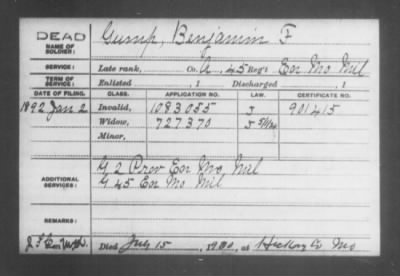 DEAD
NAME OF SOLDIER: Gump, Benjamin F
SERVICE: Late rank, Co. A, 45 Reg't Enr Mo Mil
TERM OF SERVICE: Enlisted , 1 Discharged , 1
DATE OF FILING. CLASS. APPLICATION NO. LAW. CERTIFICATE NO.
1892 Jan 2 Invalid, 1083055 J 901415
Widow, 727370 J
Minor,
ADDITIONAL SERVICES: G 2 Prov Enr Mo, Mil
G 45 Enr Mo Mil
REMARKS:
Died July 15, 1900, at Hickory Co Mo